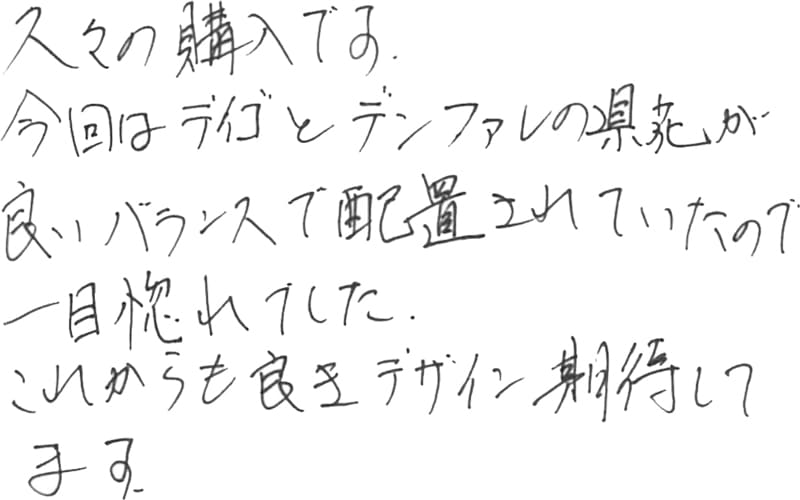 久々の購入です.
今回はデイゴとデンファレの県花が
良いバランスで配置されていたので
一目惚れでした.
これからも良きデザイン期待して
ます.